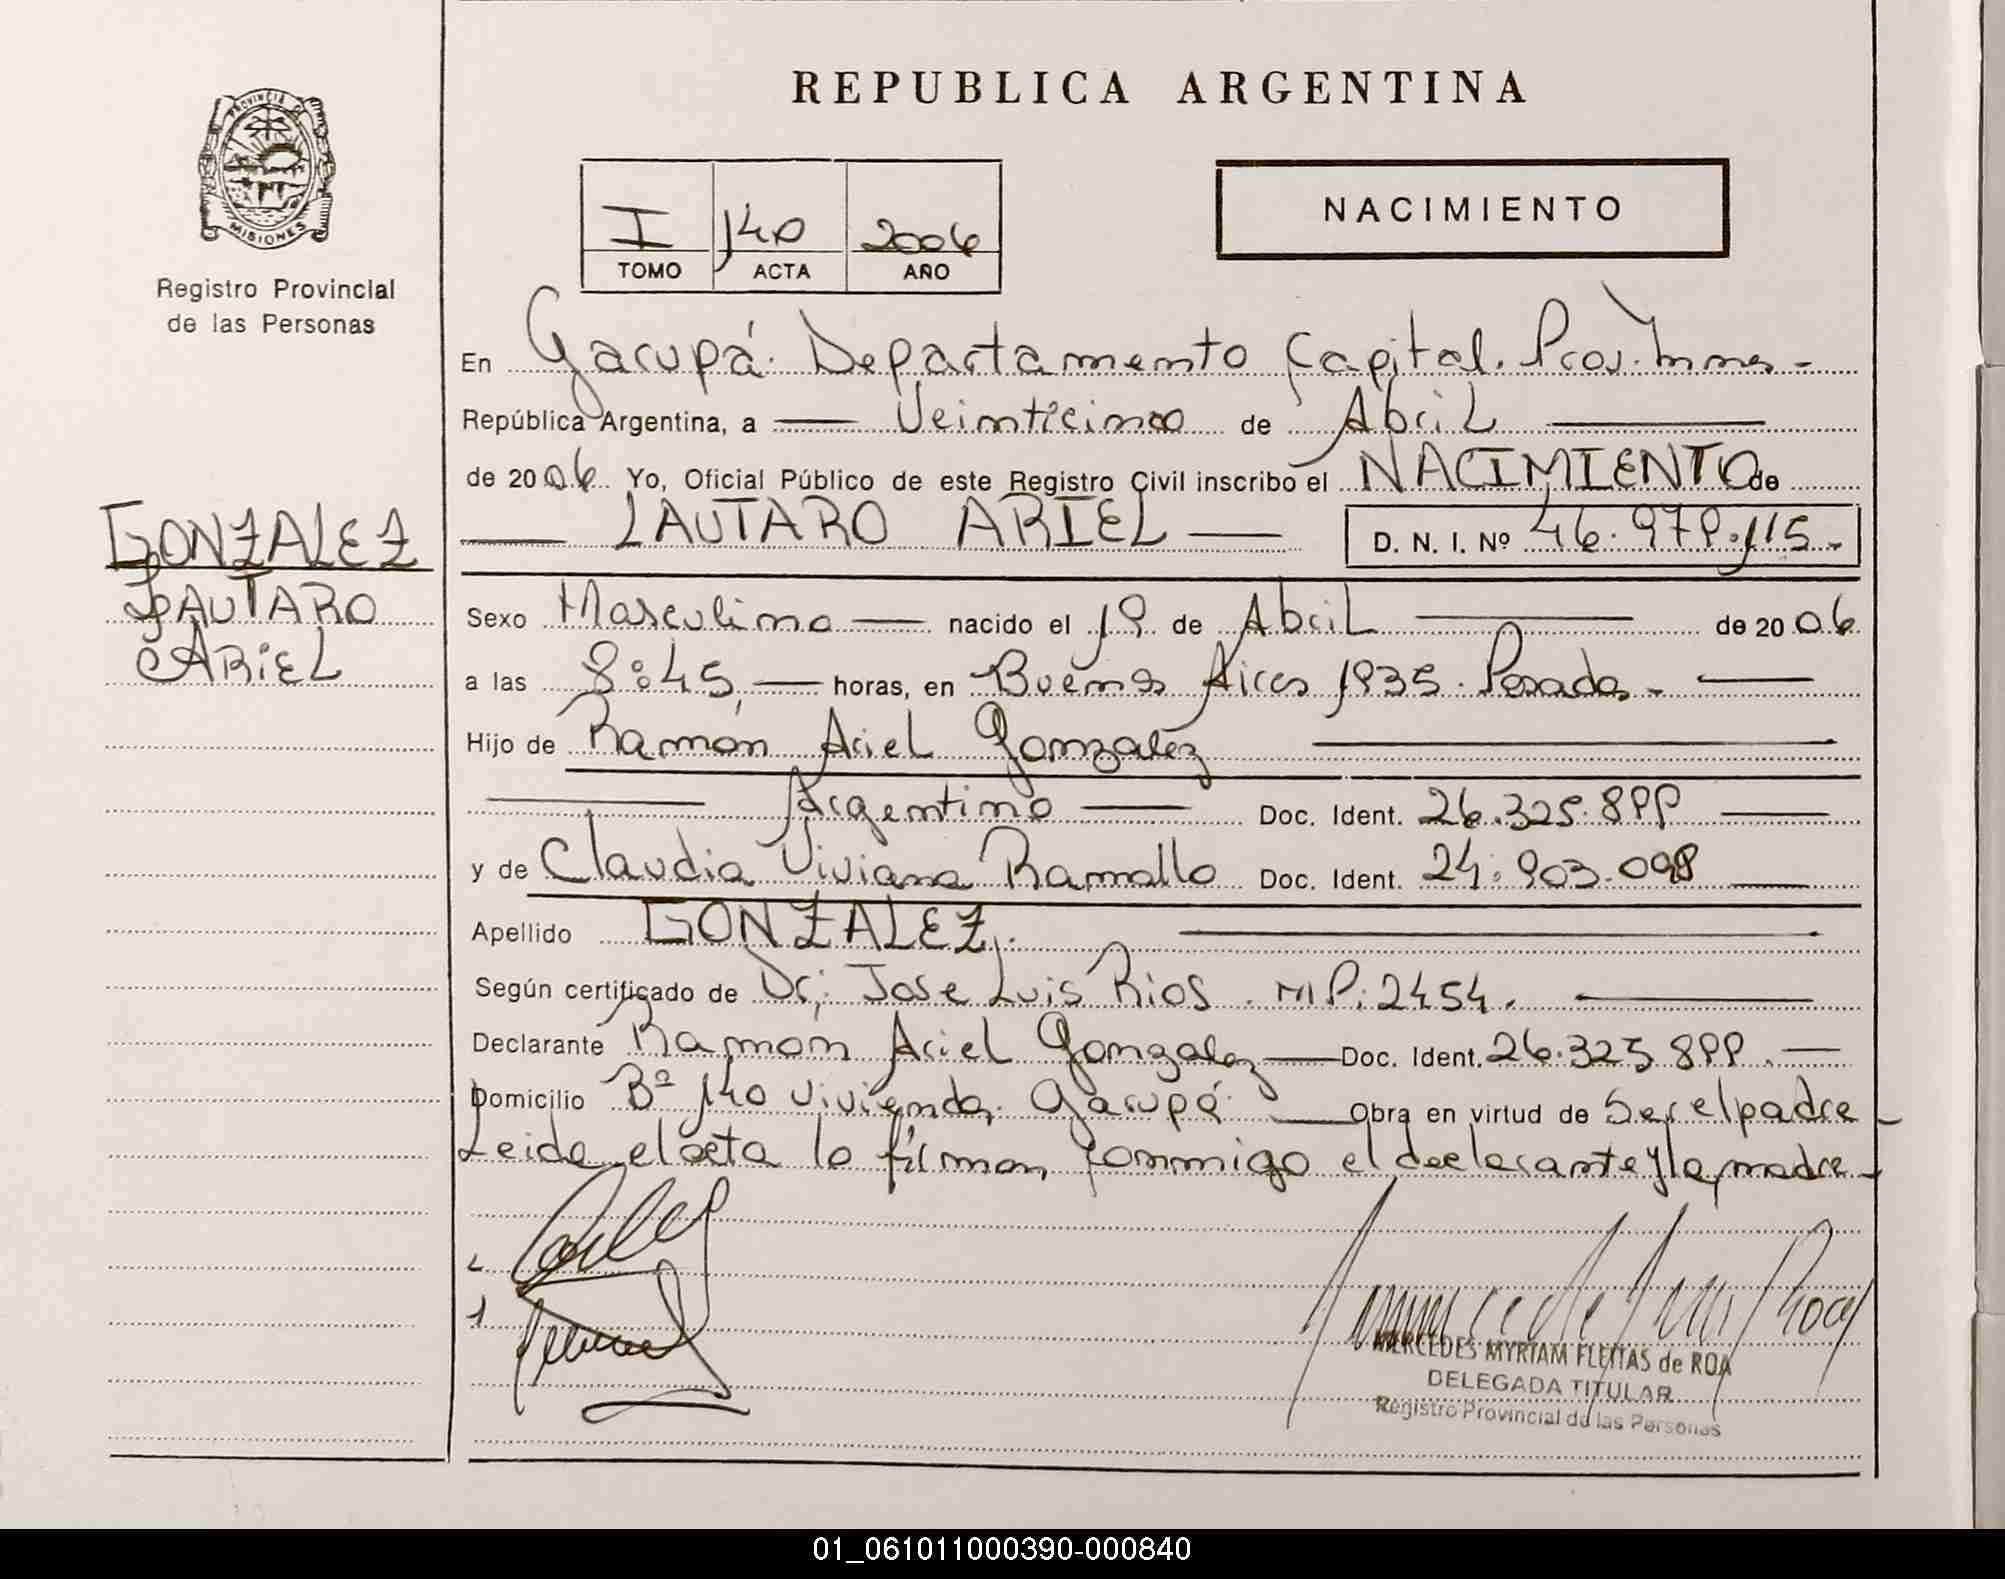 REPUBLICA ARGENTINA
PROVINCIA DE
MISIONES
Registro Provincial
de las Personas
I 140 2006
TOMO ACTA AÑO
NACIMIENTO
En Garupá. Departamento Capital. Prov. Mnes-
República Argentina, a Veinticinco de Abril
de 2006 Yo, Oficial Público de este Registro Civil inscribo el NACIMIENTO de
LAUTARO ARIEL D. N. I. Nº 46.979.115.-
GONZALEZ
LAUTARO
ARIEL
Sexo Masculino nacido el 19 de Abril de 2006
a las 8:45, horas, en Buenos Aires 1935. Posadas.-
Hijo de Ramón Ariel Gonzalez
Argentino Doc. Ident. 26.325.899
y de Claudia Viviana Ramallo Doc. Ident. 24.903.098
Apellido GONZALEZ.
Según certificado de Dr: Jose Luis Rios. M P: 2454.
Declarante Ramón Ariel Gonzalez Doc. Ident. 26.325.899.
Domicilio Bº 140 Viviendas. Garupá. Obra en virtud de Ser el padre
Leida el acta la firman conmigo el declarante y la madre
MERCEDES MYRIAM FLEITAS de ROA
DELEGADA TITULAR
Registro Provincial de las Personas
01_061011000390-000840